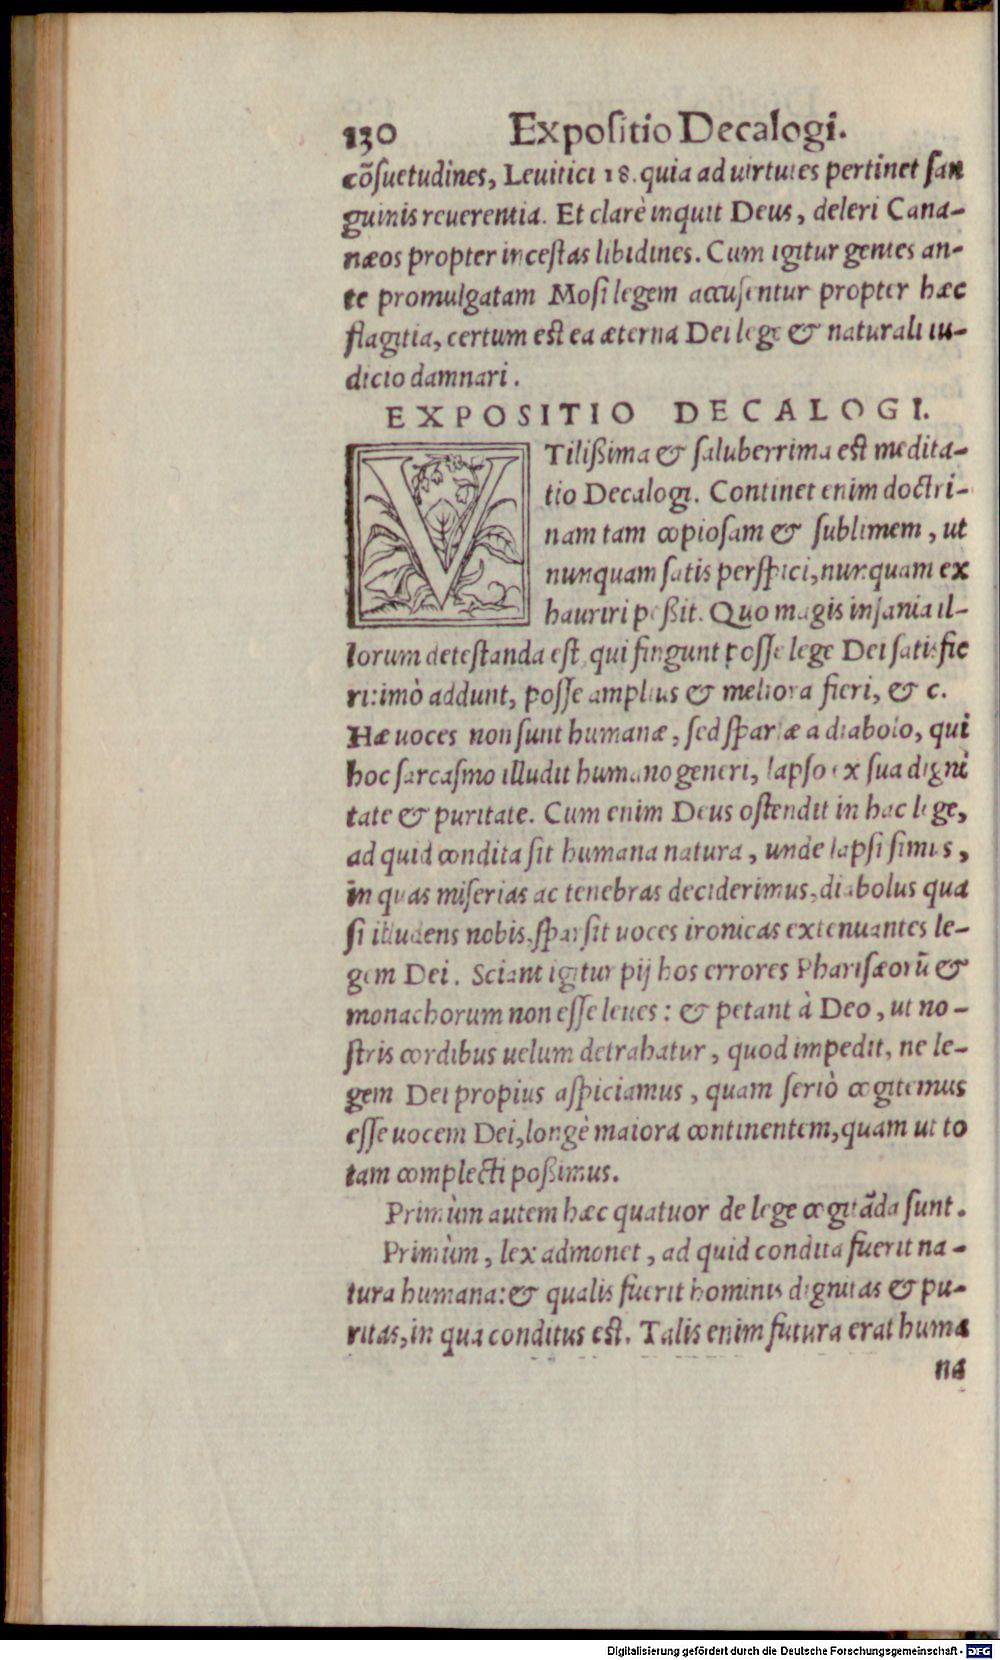 130 Expositio Decalogi.
cõſuetudines, Leuitici 18. quia ad uirtutes pertinet ſan
guinis reuerentia. Et clarè inquit Deus, deleri Cana-
næos propter inceſtas libidines. Cum igitur gentes an-
te promulgatam Moſi legem accuſentur propter hæc
flagitia, certum eſt ea æterna Dei lege & naturali iu-
dicio damnari.
EXPOSITIO DECALOGI.
VTiliſsima & ſaluberrima eſt medita-
tio Decalogi. Continet enim doctri-
nam tam copioſam & ſublimem, ut
nunquam ſatis perſpici, nunquam ex
hauriri poſsit. Quo magis inſania il-
lorum deteſtanda eſt qui fingunt poſſe lege Dei ſatisfie
ri: imò addunt, poſſe amplius & meliora fieri, & c.
Hæ uoces non ſunt humanæ, ſed ſparſæ a diabolo, qui
hoc ſarcaſmo illudit humano generi, lapſo ex ſua digni
tate & puritate. Cum enim Deus oſtendit in hac lege,
ad quid condita ſit humana natura, unde lapſi ſimus,
in quas miſerias ac tenebras deciderimus, diabolus qua
ſi illudens nobis, ſparſit uoces ironicas extenuantes le-
gem Dei. Sciant igitur pij hos errores Phariſæorũ &
monachorum non eſſe leues: & petant à Deo, ut no-
ſtris cordibus uelum detrahatur, quod impedit, ne le-
gem Dei propius aſpiciamus, quam ſeriò cogitemus
eſſe uocem Dei, longè maiora continentem, quam ut to
tam complecti poſsimus.
Primùm autem hæc quatuor de lege cogitãda ſunt.
Primùm, lex admonet, ad quid condita fuerit na-
tura humana: & qualis fuerit hominis dignitas & pu-
ritas, in qua conditus eſt. Talis enim futura erat huma
na
Digitalisierung gefördert durch die Deutsche Forschungsgemeinschaft - DFG